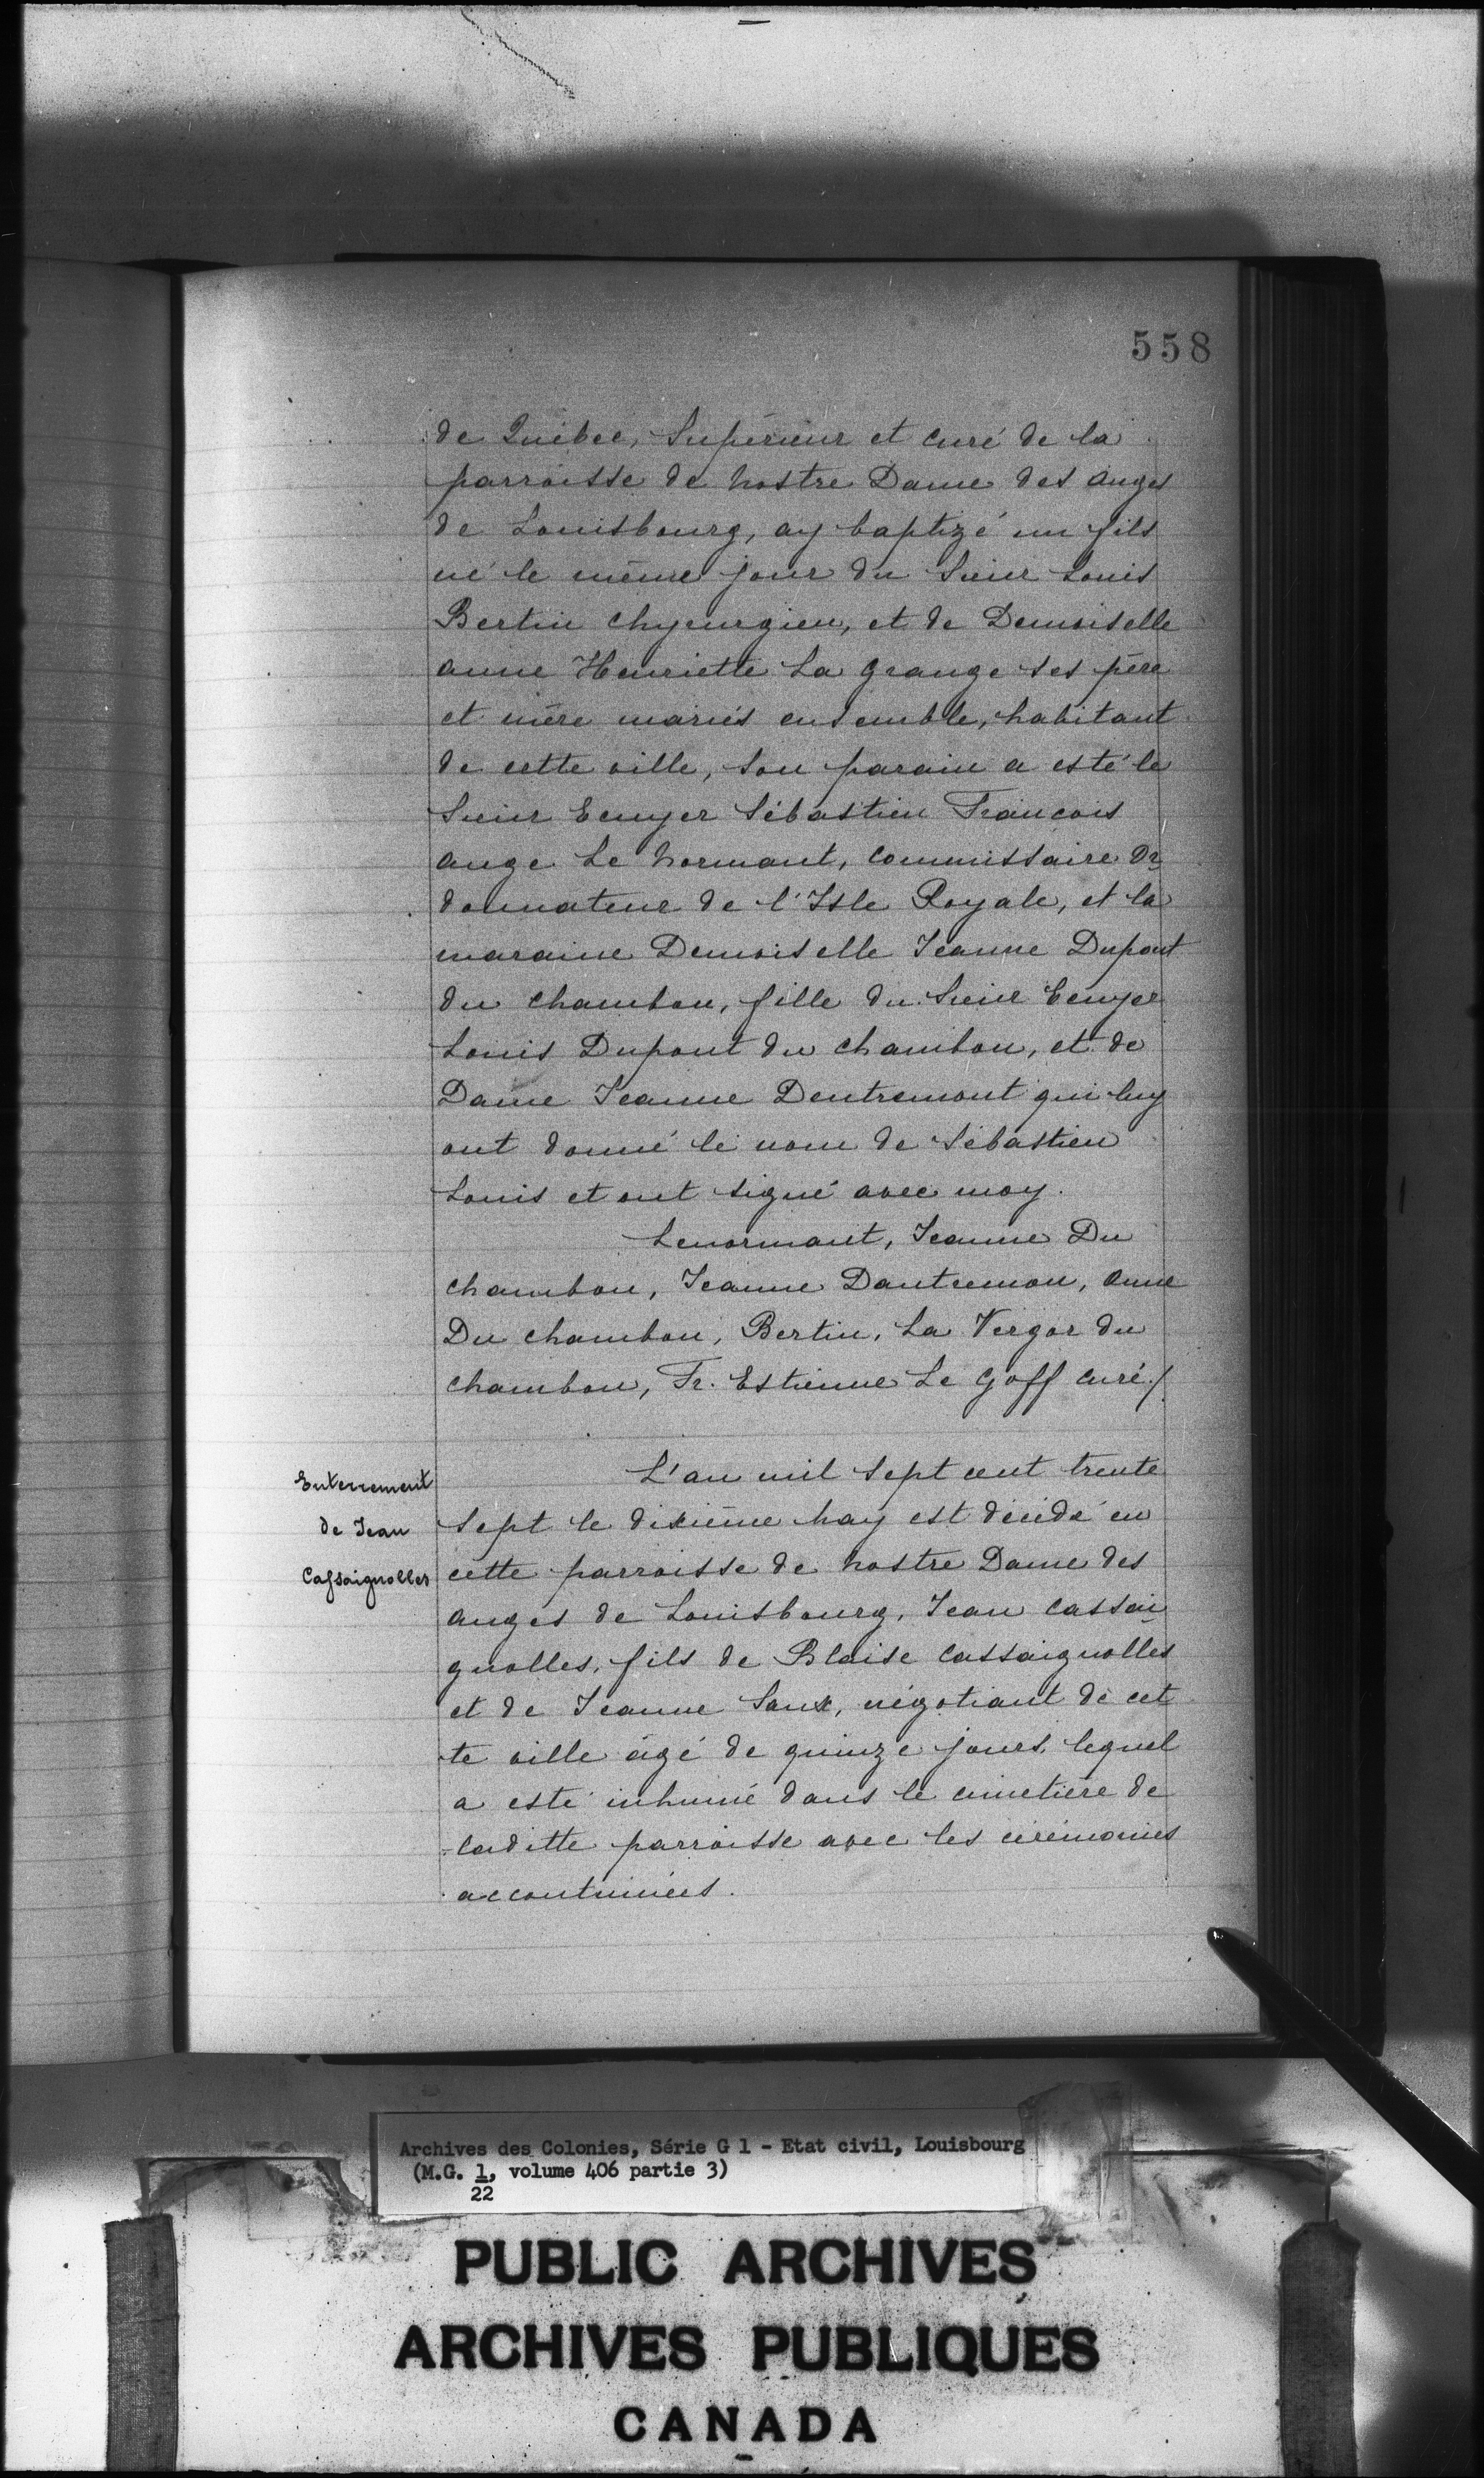 558
de Québec, Supérieur et curé de la
parroisse de nostre Dame des anges
de Louisbourg, ay baptizé un fils
né le même jour du Sieur Louis
Bertin chyrurgien, et de Demoiselle
anne Henriette La grange ses père
et mère mariés ensemble, habitant
de cette ville, son parain a esté le
Sieur Ecuyer Sébastien François
ange Le normant, commissaire Or
donnateur de l'Isle Royale, et la
maraine Demoiselle Jeanne Dupont
du chambon, fille du Sieur Ecuyer
Louis Dupont du chambon, et de
Dame Jeanne Dentremont qui luy
ont donné le nom de Sébastien
Louis et ont signé avec moy.
Lenormant, Jeanne Du
chambon, Jeanne Dantremon, anne
Du chambon, Bertin, La Vergor du
chambon, Fr. Estienne Le Goff curé./
Enterrement
de Jean
Cassaignolles
L'an mil sept cent trente
sept le dixième may est décédé en
cette parroisse de nostre Dame des
anges de Louisbourg, Jean cassai
gnolles, fils de Blaise cassaignolles
et de Jeanne Saux, négotiant de cet
te ville âgé de quinze jours, lequel
a esté inhumé dans le cimetière de
laditte parroisse avec les cérémonies
accoutumées.
Archives des Colonies, Série G 1 - Etat civil, Louisbourg
(M.G. 1, volume 406 partie 3)
22
PUBLIC ARCHIVES
ARCHIVES PUBLIQUES
CANADA